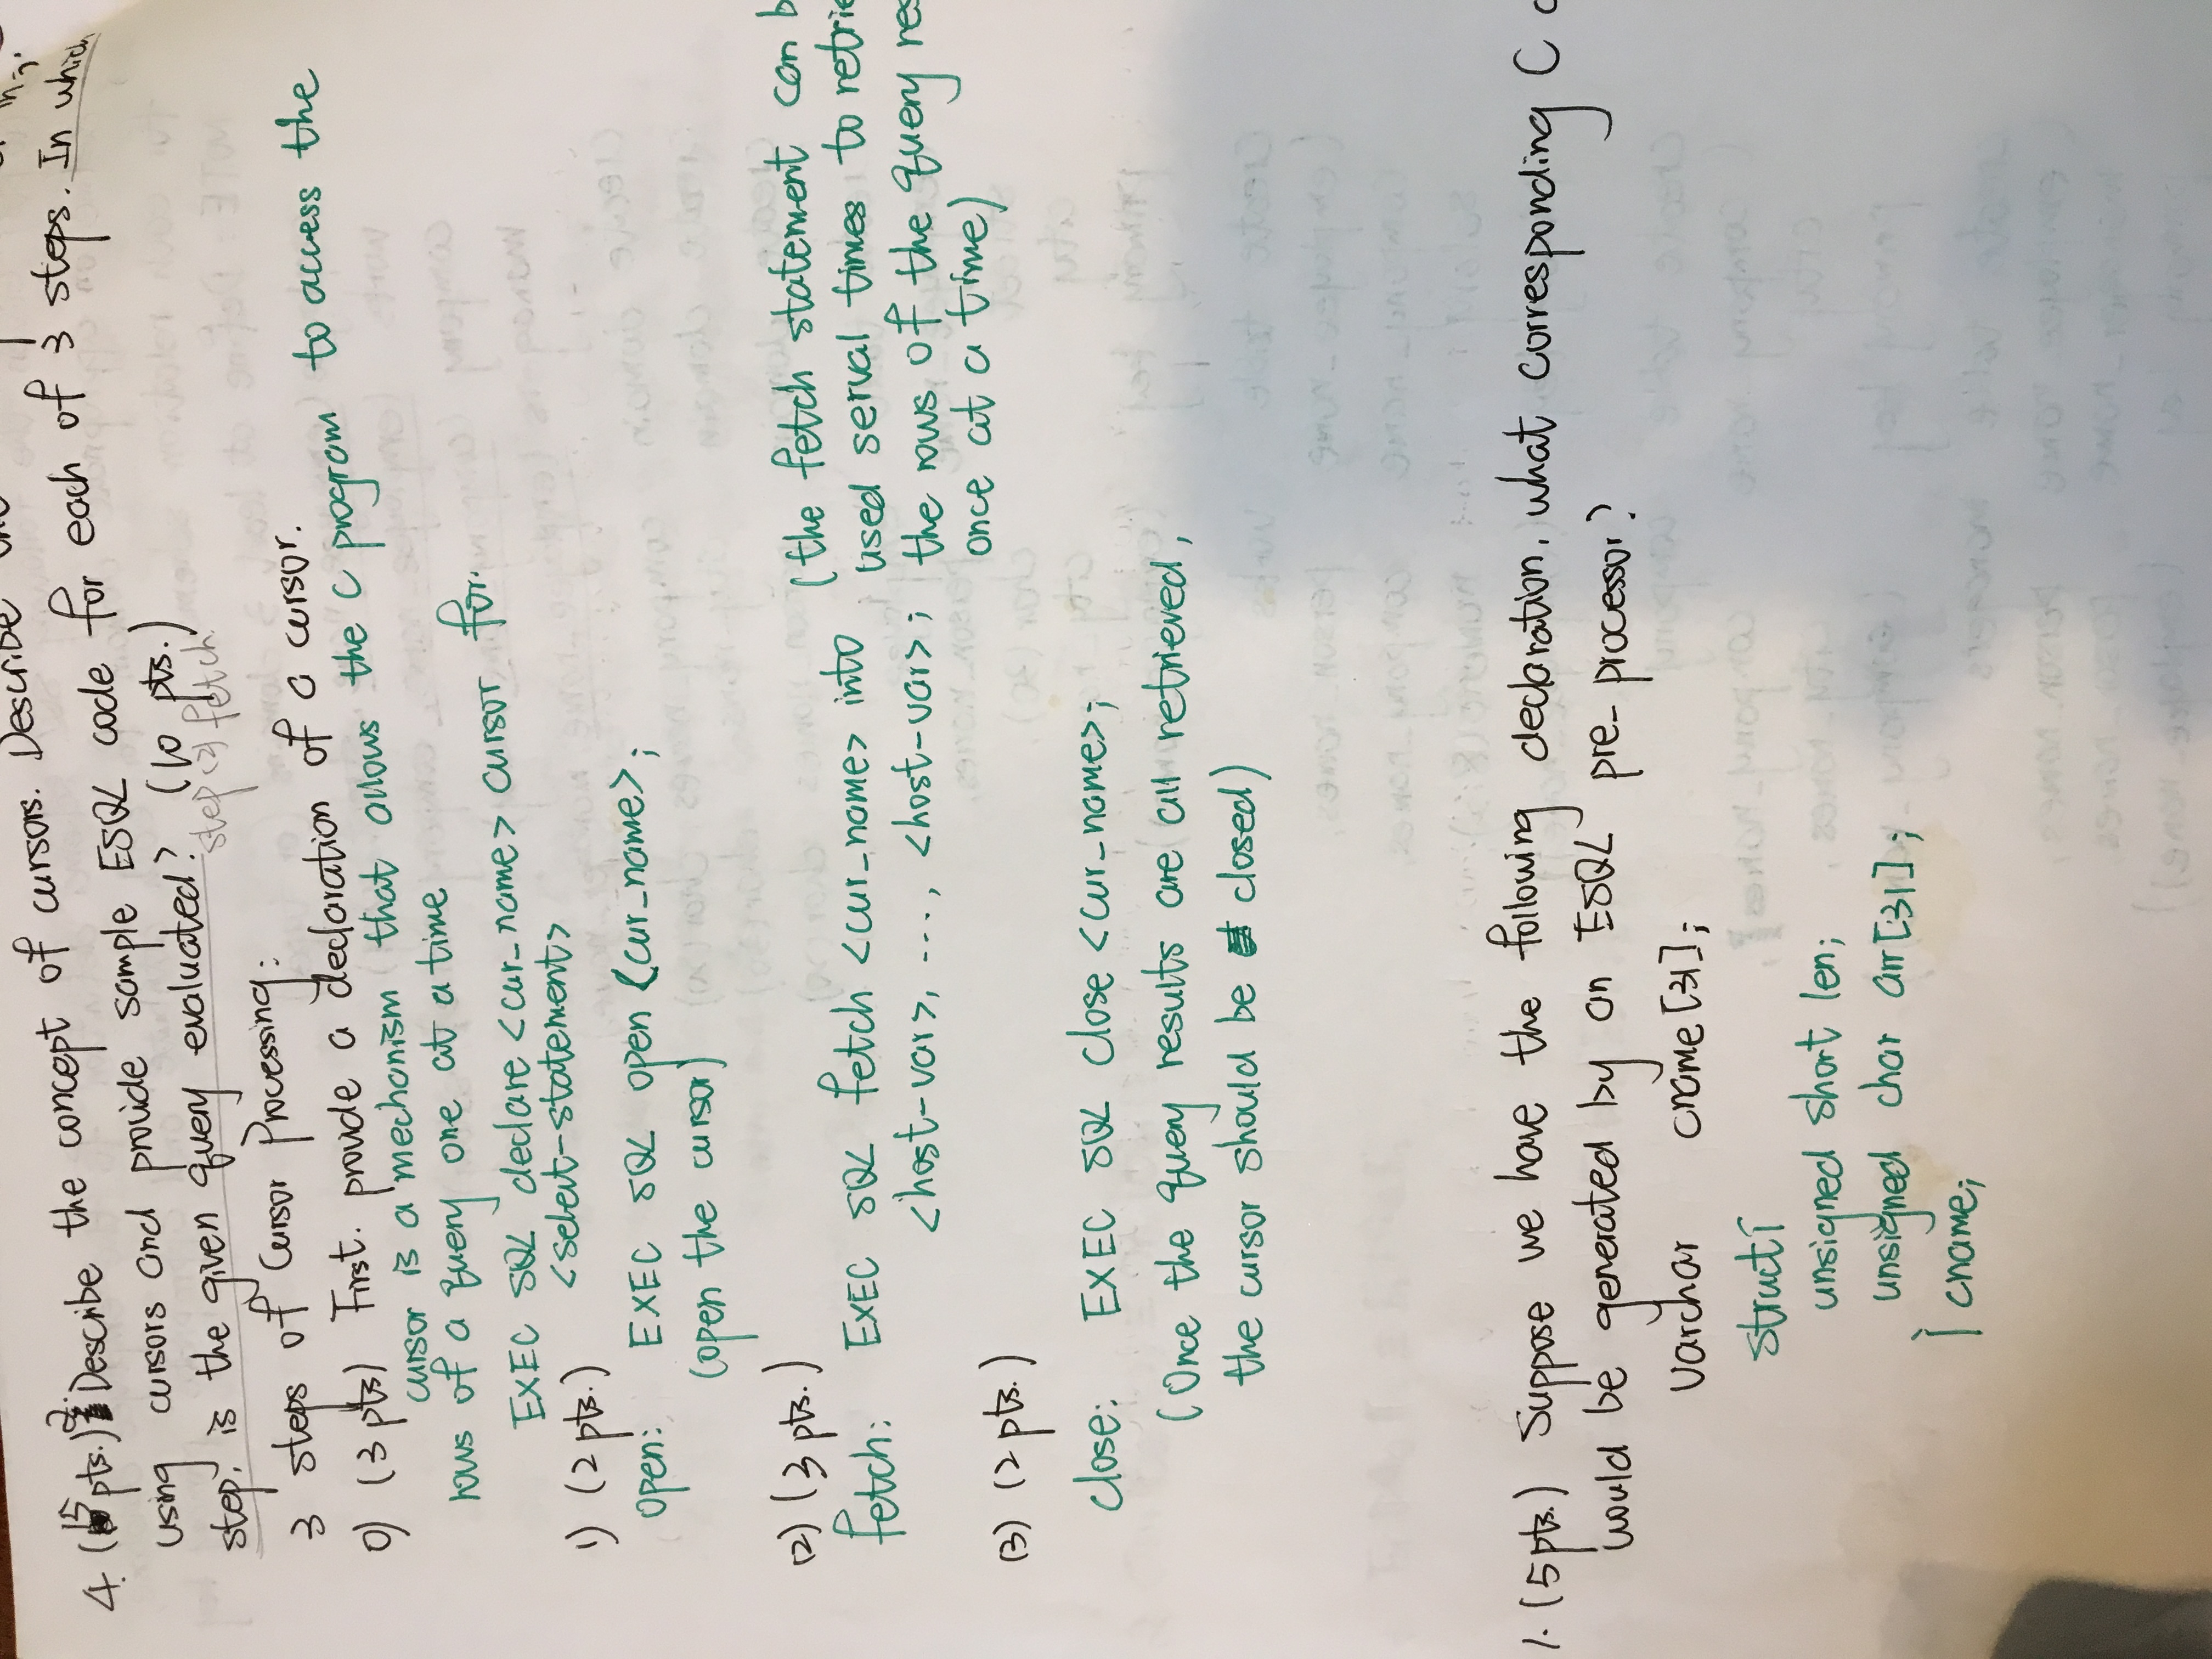 4. (15 pts.) 2. Describe the concept of cursors. Describe
using cursors and provide sample ESQL code for each of 3 steps. In which
step, is the given query evaluated? (10 pts.)
step (2) fetch
3 steps of Cursor Processing:
0) (3 pts) First. provide a declaration of a cursor.
cursor is a mechanism that allows the C program to access the
rows of a query one at a time
EXEC SQL declare <cur_name> cursor for.
<select-statement>
1) (2 pts.)
open: EXEC SQL open <cur_name>;
(open the cursor)
(2) (3 pts.)
fetch: EXEC SQL fetch <cur_name> into
<host-var>, ..., <host-var>;
(the fetch statement can b
used serval times to retrie
the rows of the query res
once at a time)
(3) (2 pts.)
close: EXEC SQL close <cur_name>;
(Once the query results are all retrieved,
the cursor should be closed)
1. (5 pts.) Suppose we have the following declaration, what corresponding C
would be generated by an ESQL pre-processor?
Varchar cname [31];
struct{
unsigned short len;
unsigned char arr[31];
} cname;